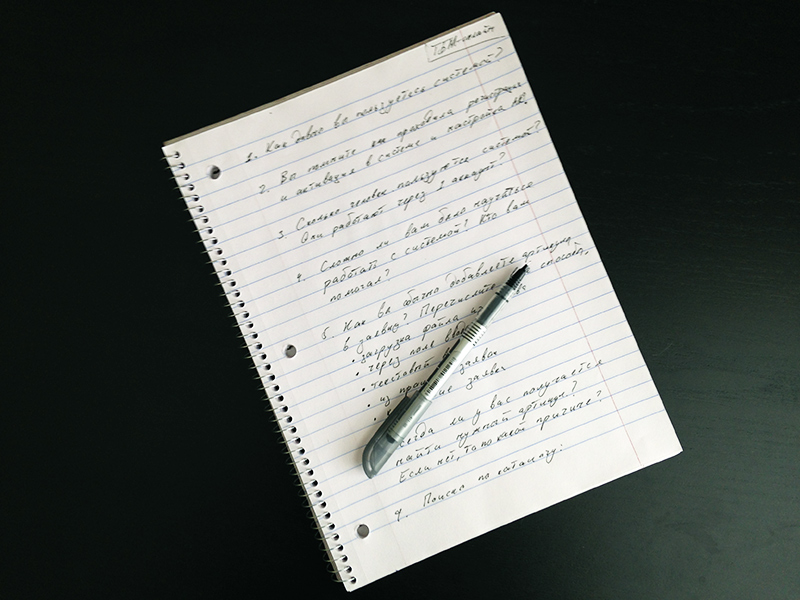 ТБМ-онлайн
1. Как давно вы пользуетесь системой?
2. Вы помните как проходила регистрация
и активация в системе и настройка ПО?
3. Сколько человек пользуются системой?
Они работают через 1 аккаунт?
4. Сложно ли вам было научиться
работать с системой? Кто вам
помогал?
5. Как вы обычно добавляете артикула
в заявку? Перечислите все способы,
• загрузка файла
• через поле
• текстовый
• из заявок
• заявки
у вас получается
найти нужный артикул?
Если нет, то по какой причине?
7. Поиск по каталогу: